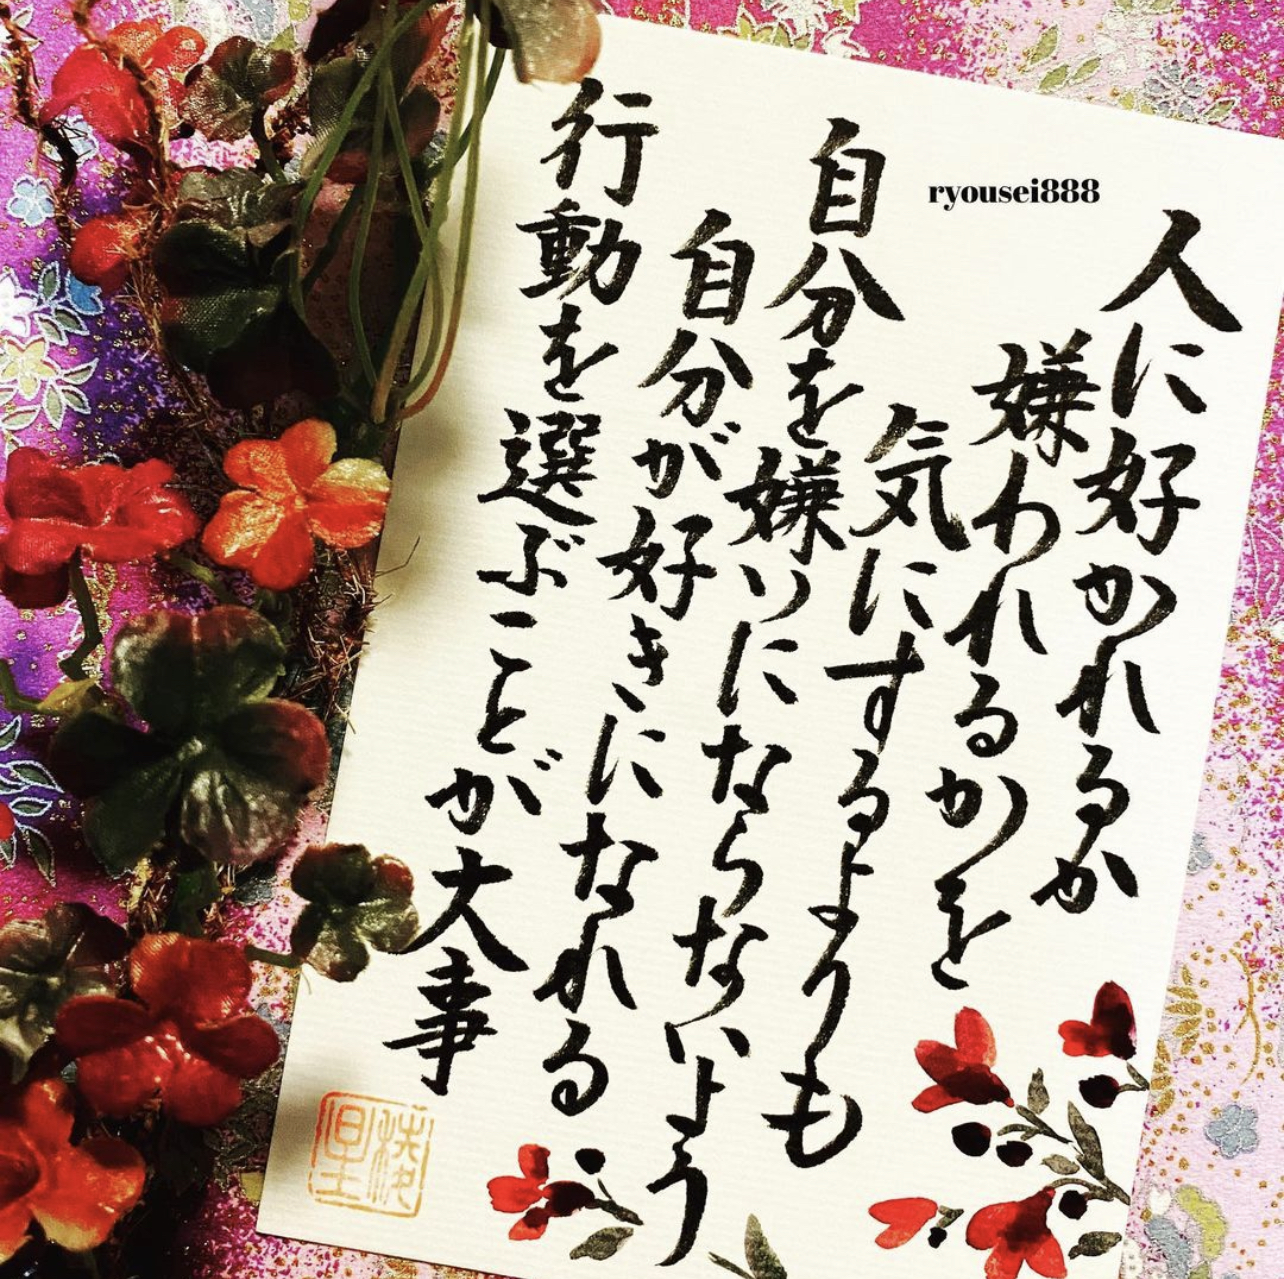 ryousei888
人に好かれるか
嫌われるかを
気にするよりも
自分を嫌いにならないよう
自分が好きになれる
行動を選ぶことが大事